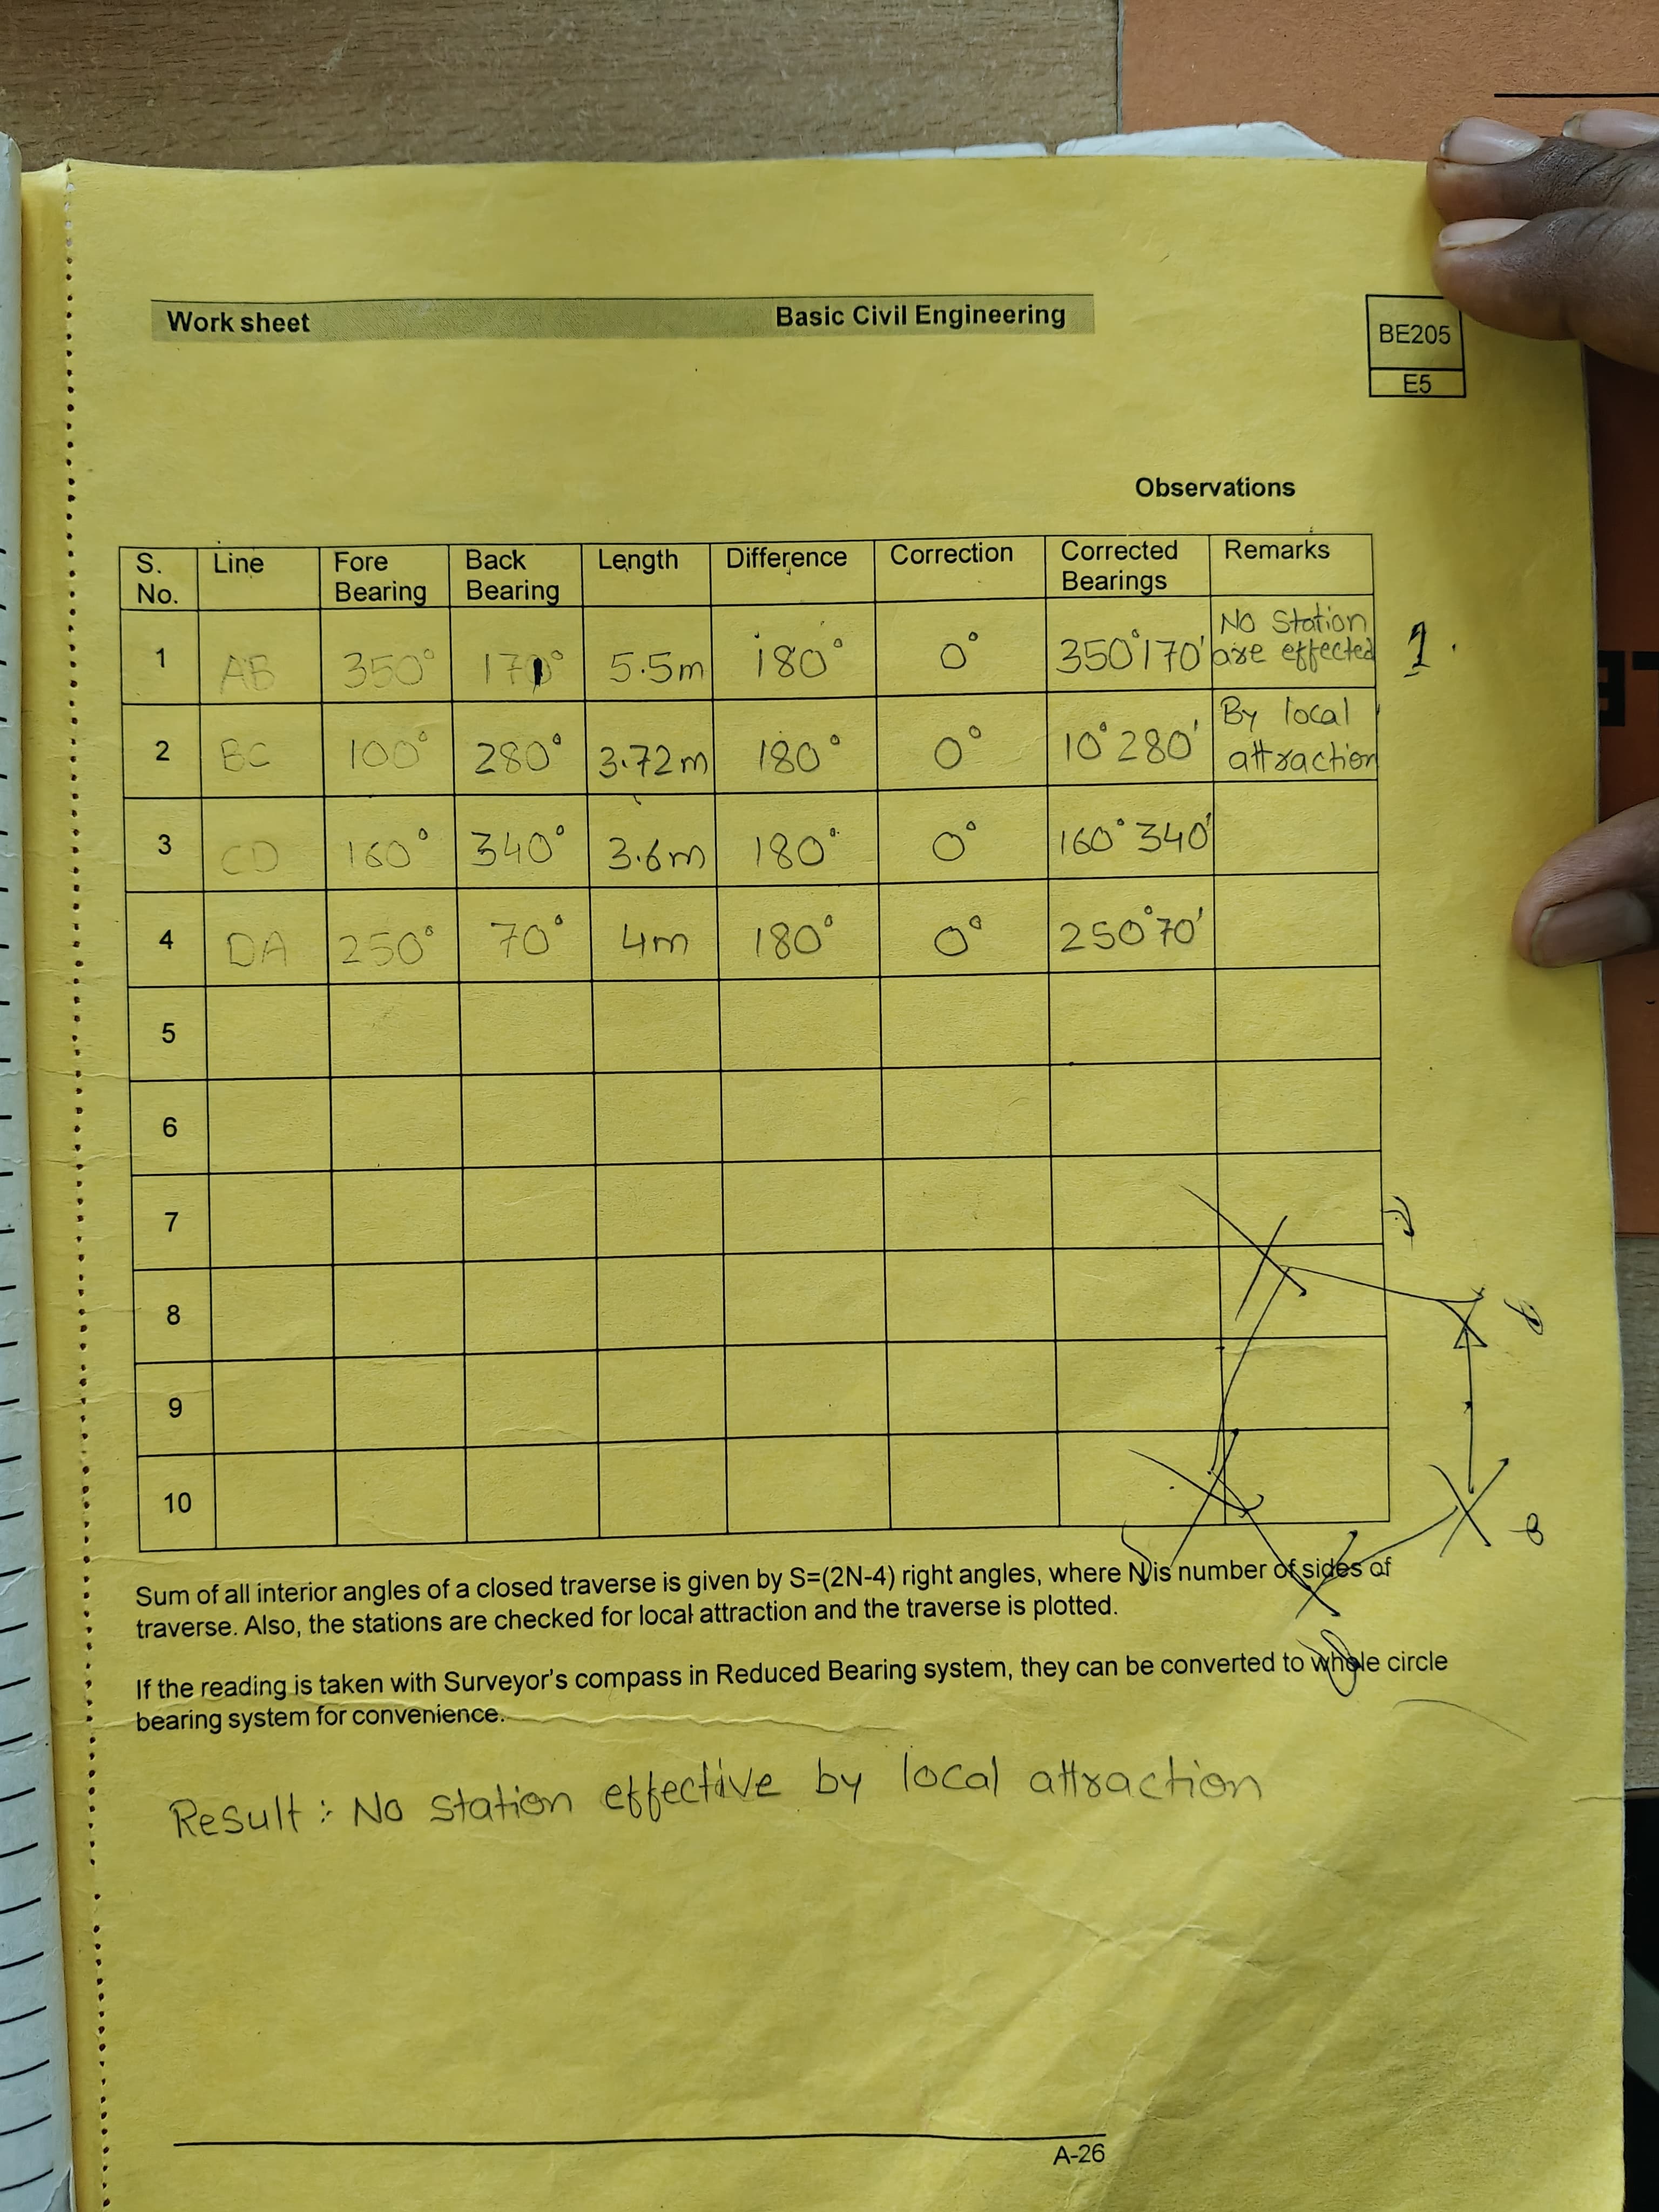 Work sheet Basic Civil Engineering
BE205
E5
Observations
S. No. Line Fore Bearing Back Bearing Length Difference Correction Corrected Bearings Remarks
1 AB 350° 170° 5.5m 180° 0° 350°170' No Station are effected
1.
2 BC 100° 280° 3.72m 180° 0° 10°280' By local attraction
3 CD 160° 340° 3.6m 180° 0° 160°340'
4 DA 250° 70° 4m 180° 0° 250°70'
5
6
7
8
9
10
Sum of all interior angles of a closed traverse is given by S=(2N-4) right angles, where N is number of sides of
traverse. Also, the stations are checked for local attraction and the traverse is plotted.
If the reading is taken with Surveyor's compass in Reduced Bearing system, they can be converted to whole circle
bearing system for convenience.
Result : No station effective by local attraction
A-26